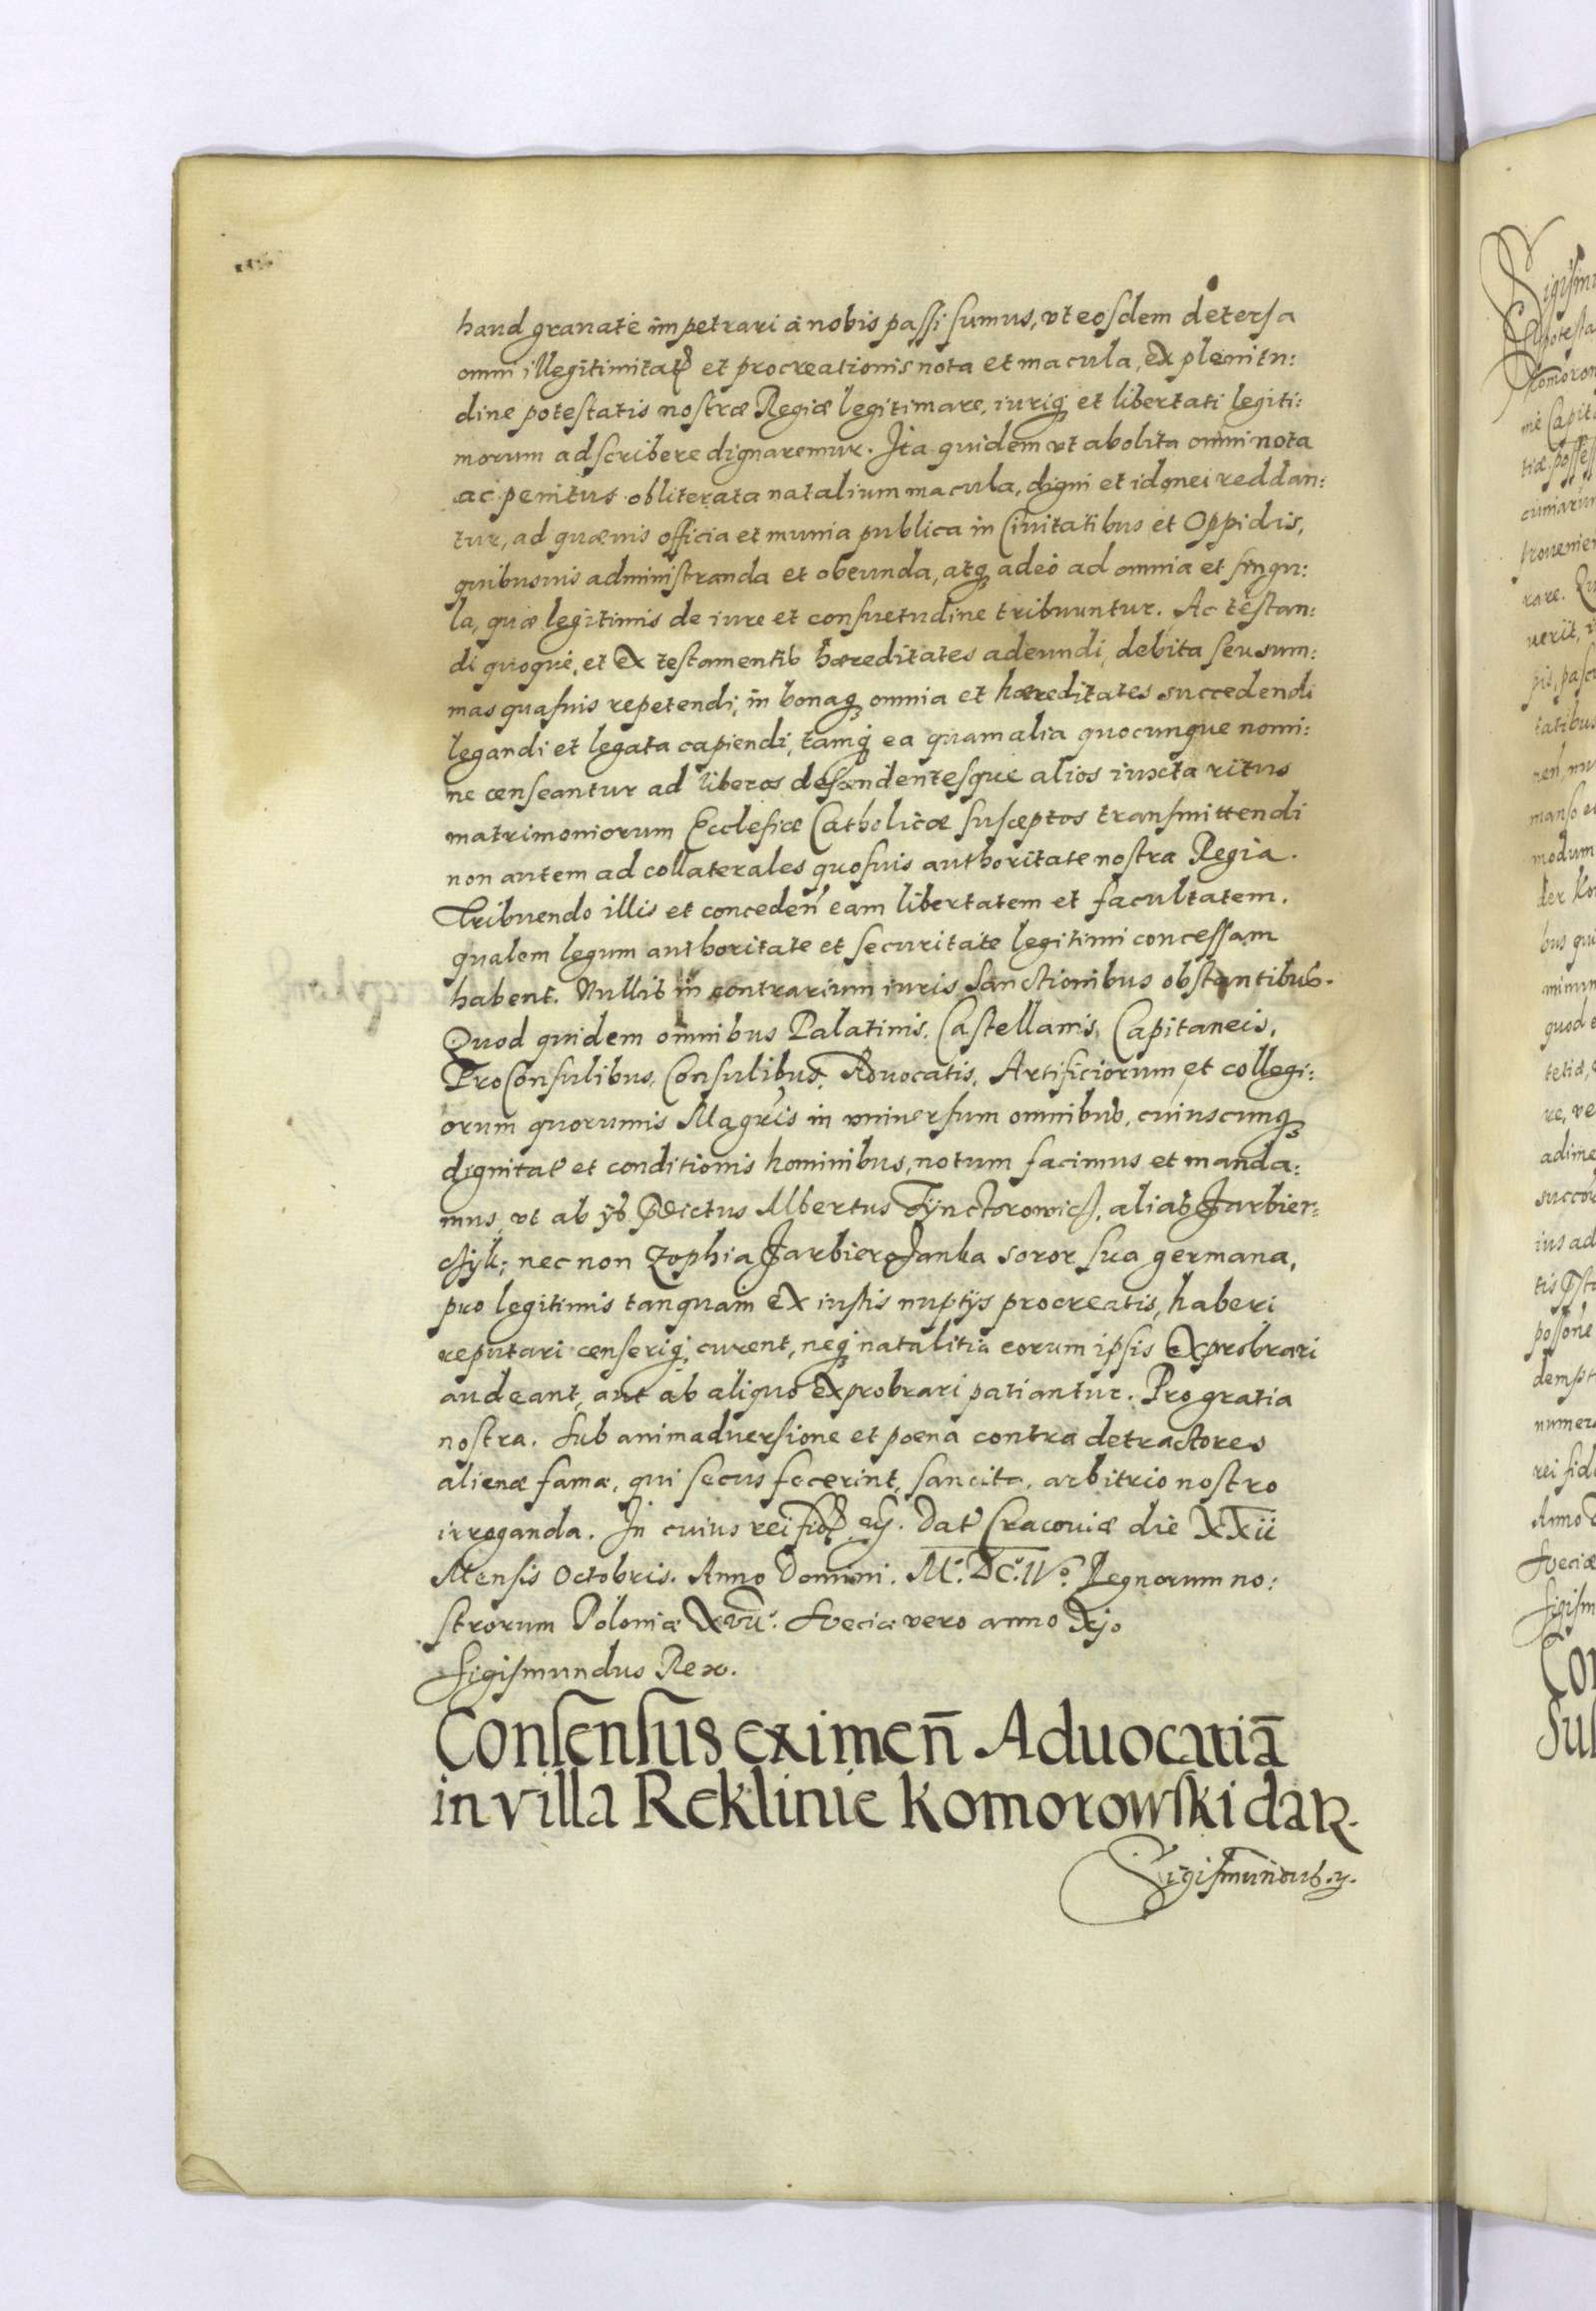 haud granatè impetrari à nobis passi sumus, vt eosdem detersa
omni illegitimitatis et procreationis nota et macula, ex plenitu:
dine potestatis nostræ Regiæ legitimare, iuriq; et libertati legiti:
morum adscribere dignaremur. Ita quidem vt abolita omni nota
ac penitus obliterata natalium macula, digni et idonei reddan:
tur, ad quæuis officia et munia publica in Ciuitatibus et Oppidis,
quibusuis administranda et obeunda, atq; adeò ad omnia et singu:
la, quæ legitimis de iure et consuetudine tribuuntur. Ac testan:
di quoque, et ex testamentis hæreditates adeundi, debita seu sum:
mas quasuis repetendi, in bonaq; omnia et hæreditates succedendi
legandi et legata capiendi, tamq; ea quam alia quocunque nomi:
ne censeantur ad liberos descendentesque alios iuxta ritus
matrimoniorum Ecclesiæ Catholicæ susceptos transmittendi
non autem ad collaterales quosuis authoritate nostra Regia.
Tribuendo illis et conceden̄ eam libertatem et facultatem.
qualem legum authoritate et securitate legitimi concessam
habent. Nullis in contrarium iuris Sanctionibus obstantibus.
Quod quidem omnibus Palatinis, Castellanis, Capitaneis,
ProConsulibus, Consulibus, Aduocatis, Artificiorum et collegi:
orum quorumuis Magr̃is in vniuersum omnibus, cuiuscunq;
dignitat̃ et conditionis hominibus, notum facimus et manda:
mus, vt ab ijs p̃dictus Albertus Tynctorowicz, alias Farbier:
czyk; nec non Zophia Farbierczanka soror sua germana,
pro legitimis tanquam ex iustis nuptijs procreatis, haberi
reputari censeriq; curent, neq; natalitia eorum ipsis exprobrari
audeant, aut ab aliquo exprobrari patiantur. Pro gratia
nostra. Sub animaduersione et poena contra detractores
alienæ famæ, qui secus fecerint, sancita, arbitrio nostro
irroganda. In cuius rei fid̃ ꝛc̃. Dat̃ Cracouiæ die XXii
Mensis Octobris. Anno Domini. Mº. DCº. IVº. Regnorum no:
strorum Poloniæ Xvii°. Sueciæ vero anno Xjo
Sigismundus Rex.
Consensus eximen̄ Aduocatiā
in villa Reklinie Komorowski dat̃.
Sigismundus. ꝛ.